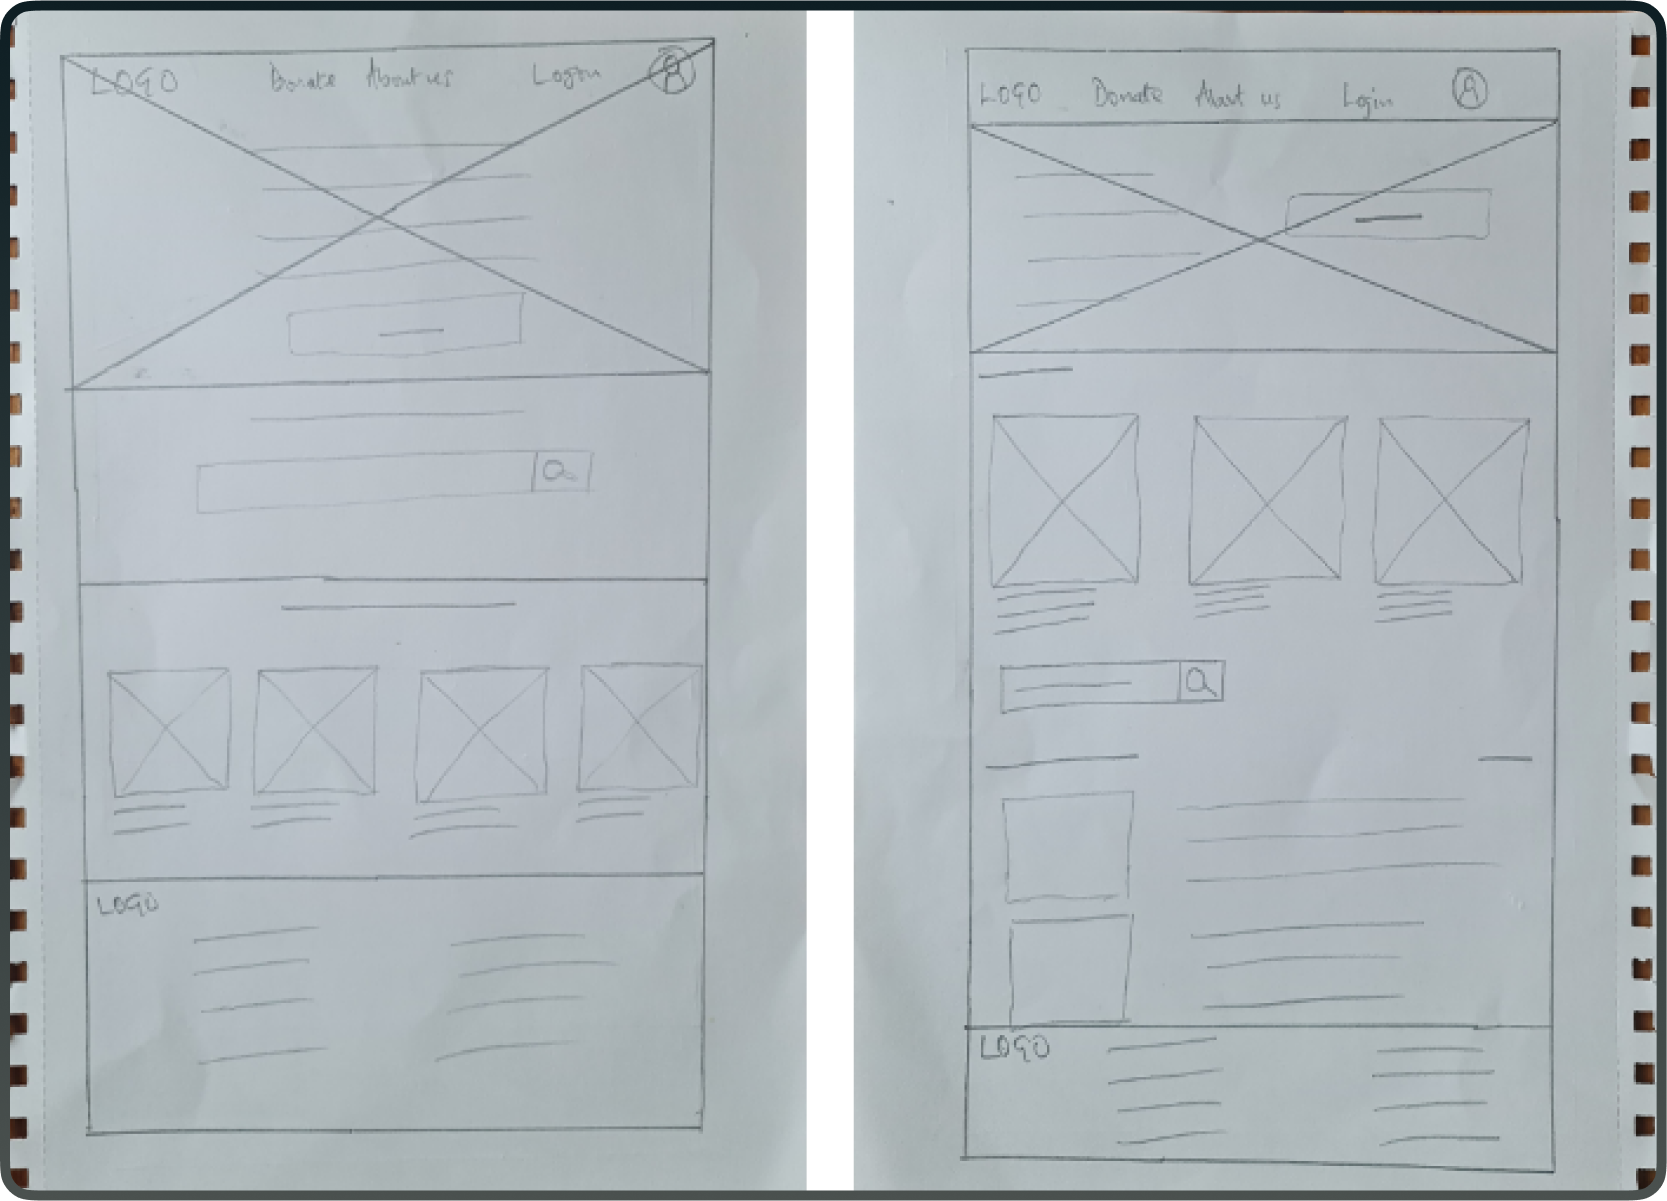 LOGO Donate About us Login
LOGO
LOGO Donate About us Login
LOGO